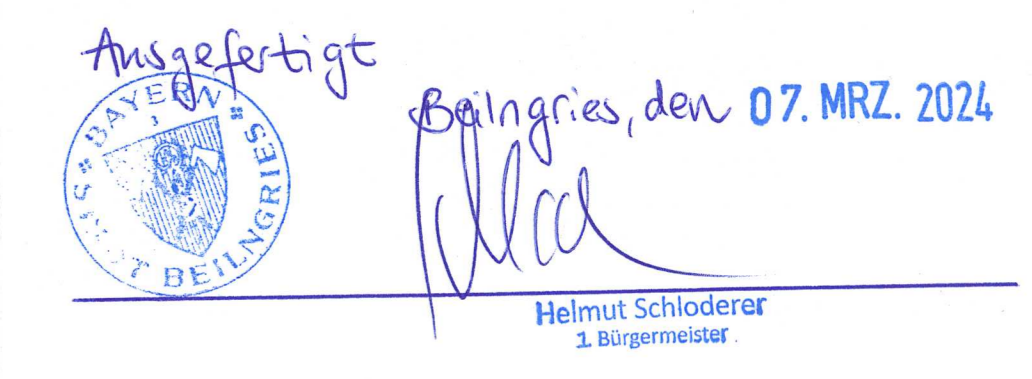 Ausgefertigt
BAYERN
STADT BEILNGRIES
Beilngries, den 07. MRZ. 2024
Helmut Schloderer
1. Bürgermeister